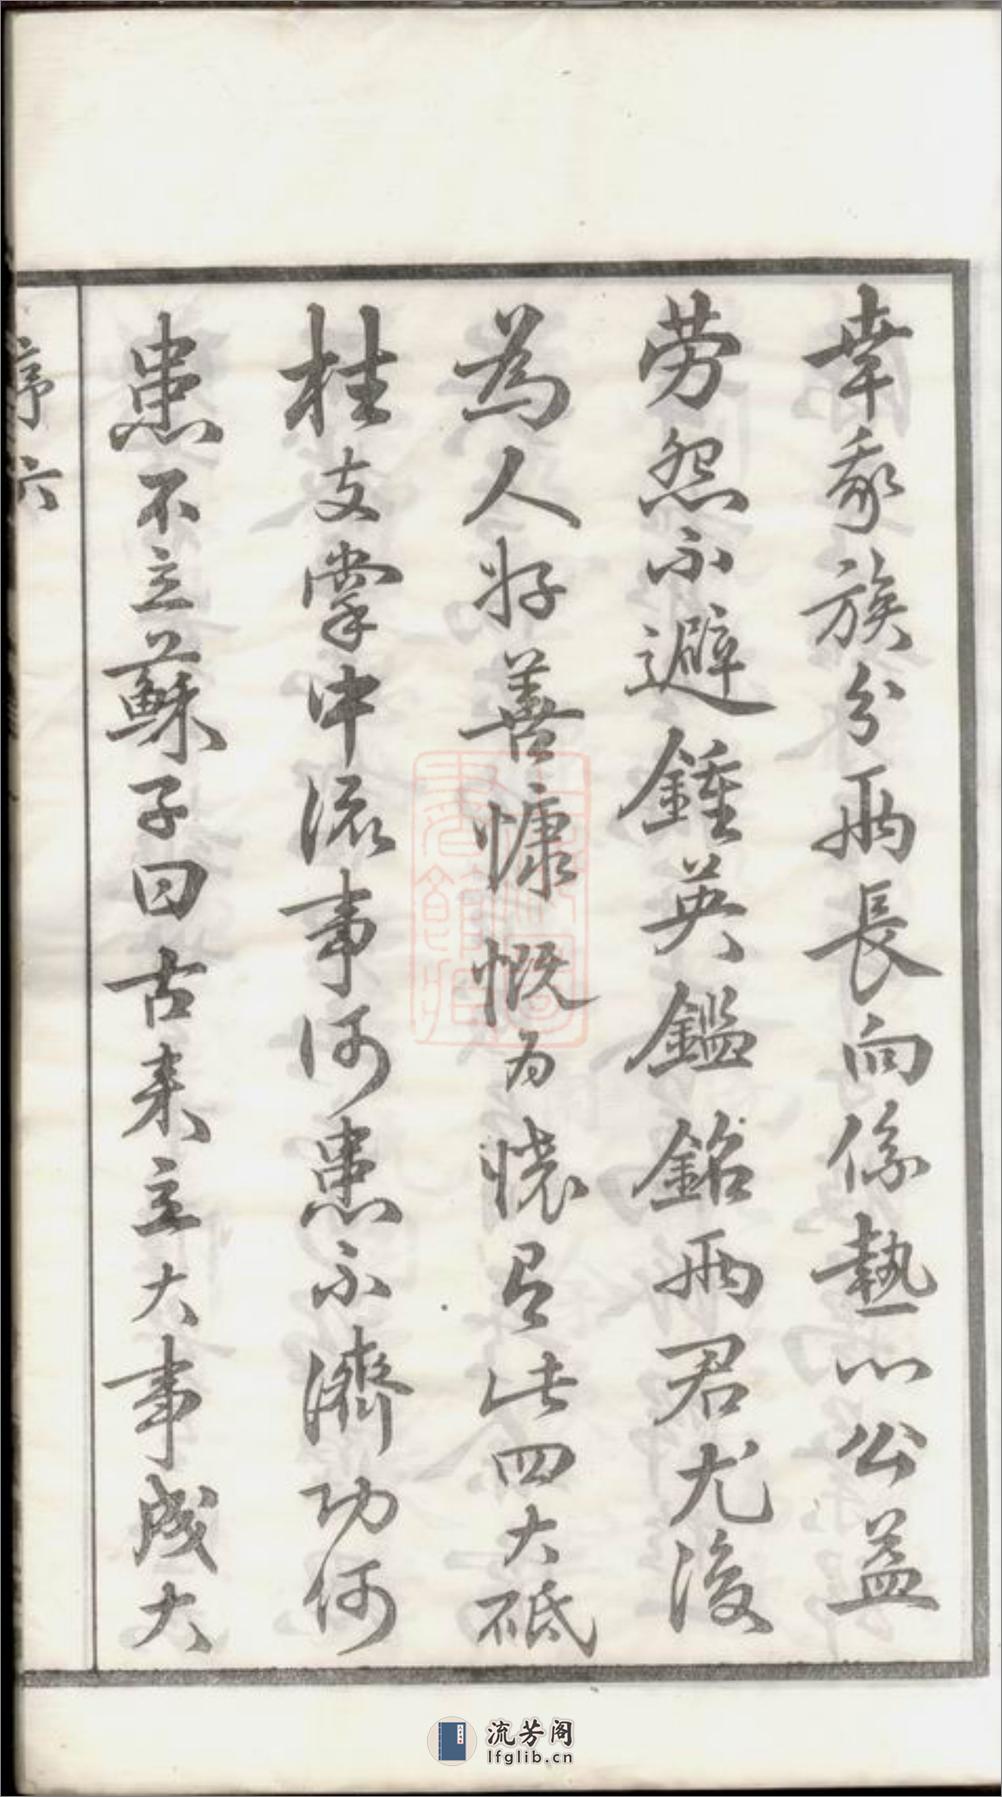 幸我族分兩長向係熱心公益
劳怨不避鍾英鑑銘兩君尤復
為人好善慷慨为懷有此四大砥
柱支掌中流事何患不濟功何
患不立蘇子曰古来立大事成大
序 六
流芳阁
lfglib.cn